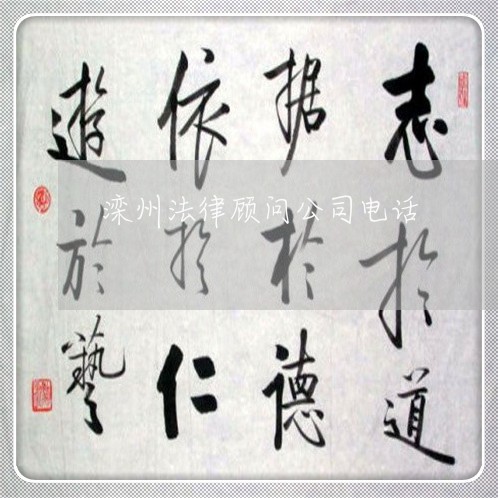 志於道
据於德
依於仁
遊於藝
滦州法律顾问公司电话